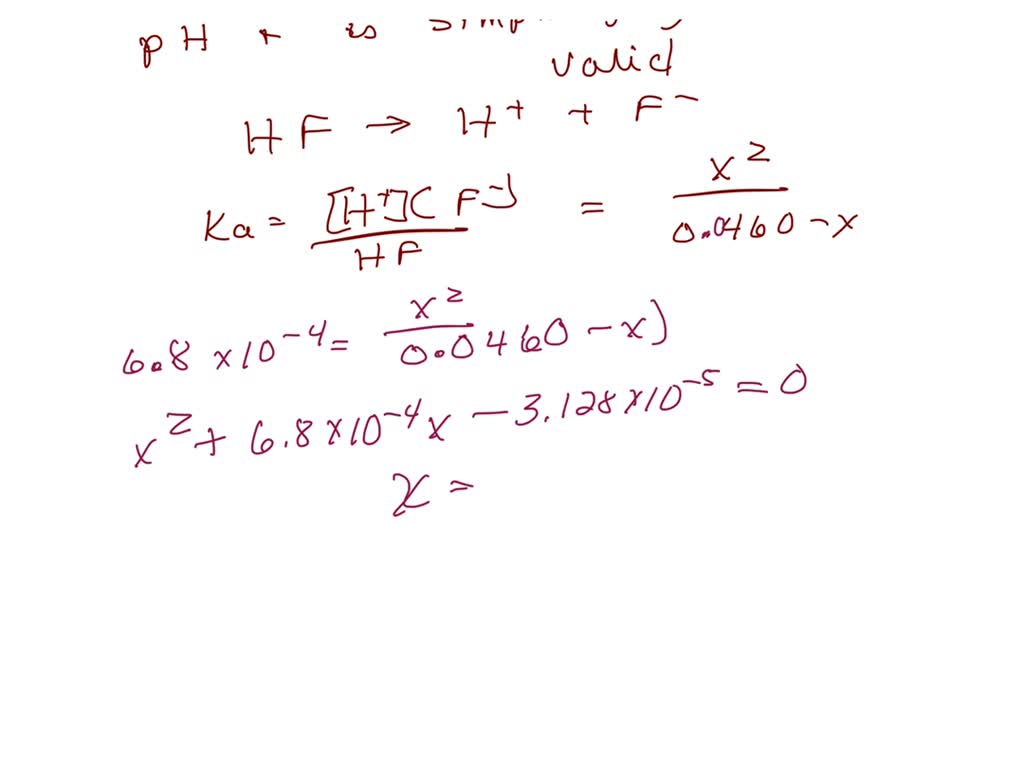 pH + is
valid
HF → H⁺ + F⁻
Ka = [H⁺][F⁻] / HF = x² / 0.0460 - x
6.8 x 10⁻⁴ = x² / 0.0460 - x)
x² + 6.8 x 10⁻⁴x - 3.128 x 10⁻⁵ = 0
x =